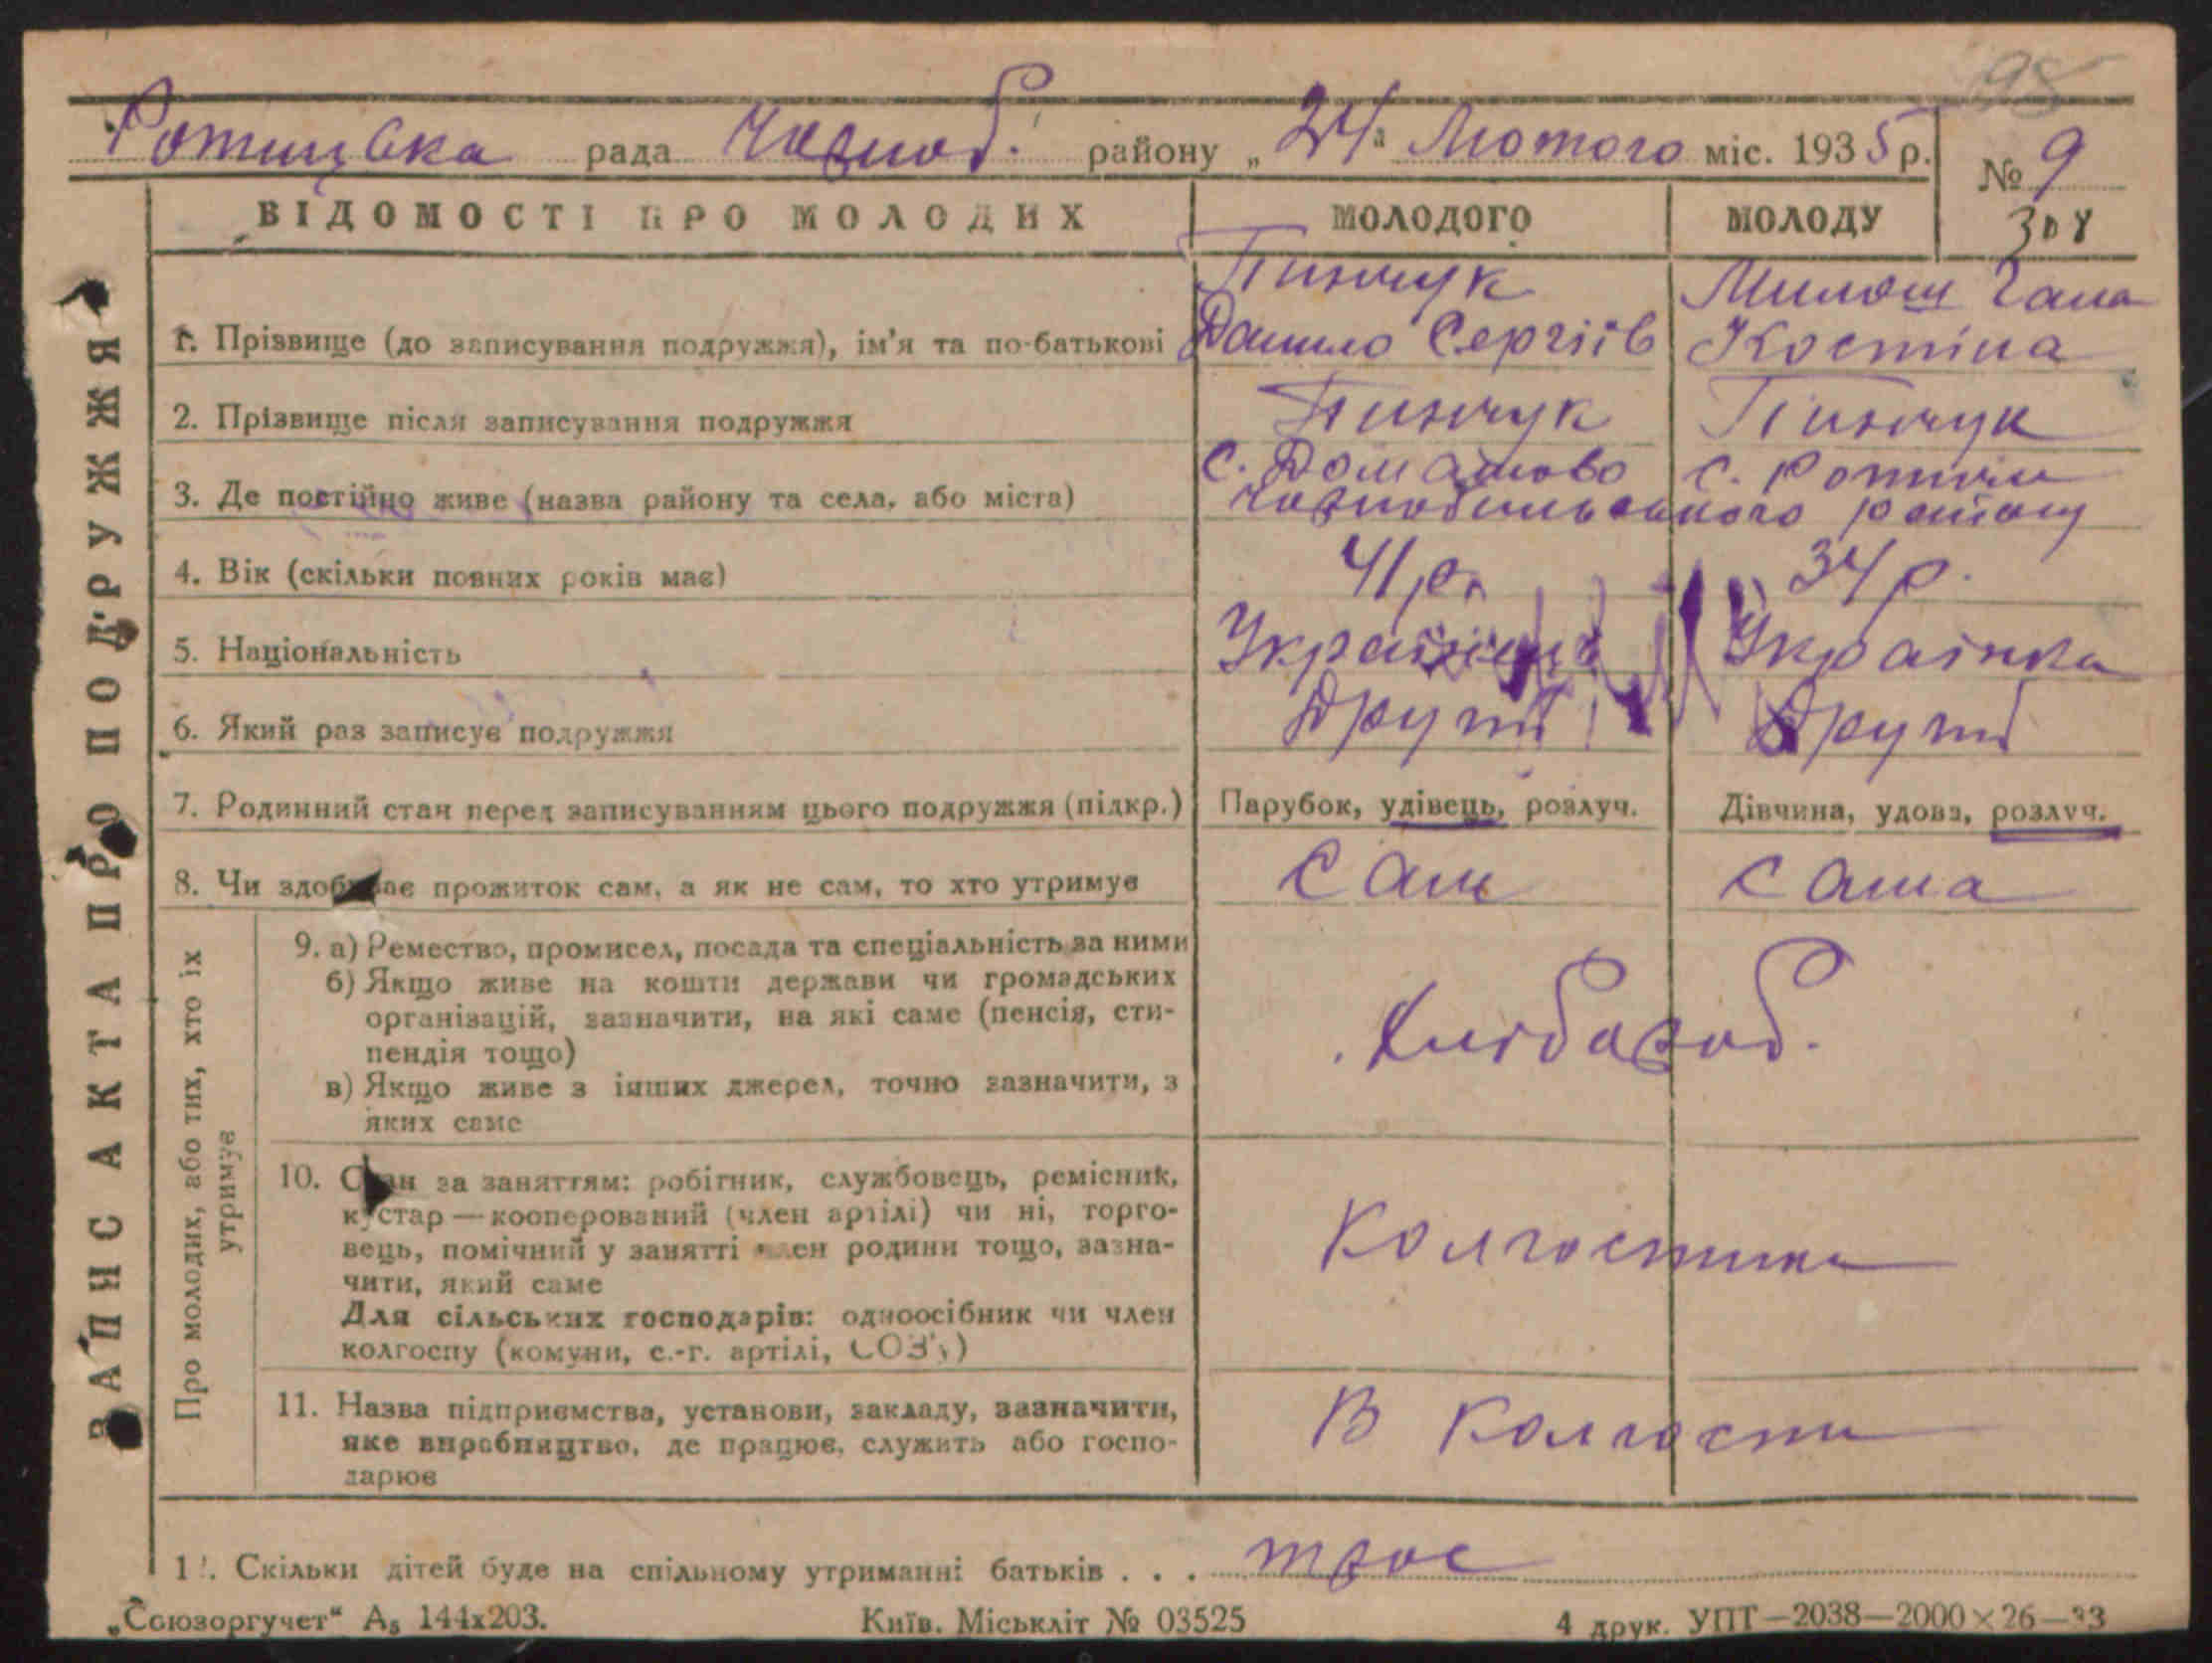 98
Ротицька рада Чорноб. району „24" Лютого міс. 1935 р.
№ 9
308
ВІДОМОСТІ ПРО МОЛОДИХ МОЛОДОГО МОЛОДУ
ЗАПИС АКТА ПРО ПОДРУЖЖЯ
1. Прізвище (до записування подружжя), ім'я та по-батькові
Пинчук
Данило Сергіїв
Милош Гана
Костіна
2. Прізвище після записування подружжя Пинчук Пинчук
3. Де постійно живе (назва району та села, або міста)
с. Домашово с. Ротичи
Чорнобильського району
4. Вік (скільки повних років має) 41 р. 34 р.
5. Національність Українець Українка
6. Який раз записує подружжя Другий Другий
7. Родинний стан перед записуванням цього подружжя (підкр.) Парубок, удівець, розлуч. Дівчина, удова, розлуч.
8. Чи здобуває прожиток сам, а як не сам, то хто утримує Сам Сама
Про молодих, або тих, хто їх
утримує
9. а) Ремество, промисел, посада та спеціальність за ними
б) Якщо живе на кошти держави чи громадських
організацій, зазначити, на які саме (пенсія, сти-
пендія тощо)
в) Якщо живе з інших джерел, точно зазначити, з
яких саме
Хлібороб.
10. Стан за заняттям: робітник, службовець, ремісник,
кустар — кооперований (член артілі) чи ні, торго-
вець, помічний у занятті член родини тощо, зазна-
чити, який саме
Для сільських господарів: одноосібник чи член
колгоспу (комуни, с.-г. артілі, СОЗ'у)
Колгоспники
11. Назва підприємства, установи, закладу, зазначити,
яке виробництво, де працює, служить або госпо-
дарює
В Колгоспи
12. Скільки дітей буде на спільному утриманні батьків . . . троє
„Союзоргучет" А₅ 144х203. Київ. Міськліт № 03525 4 друк. УПТ—2038—2000×26—33